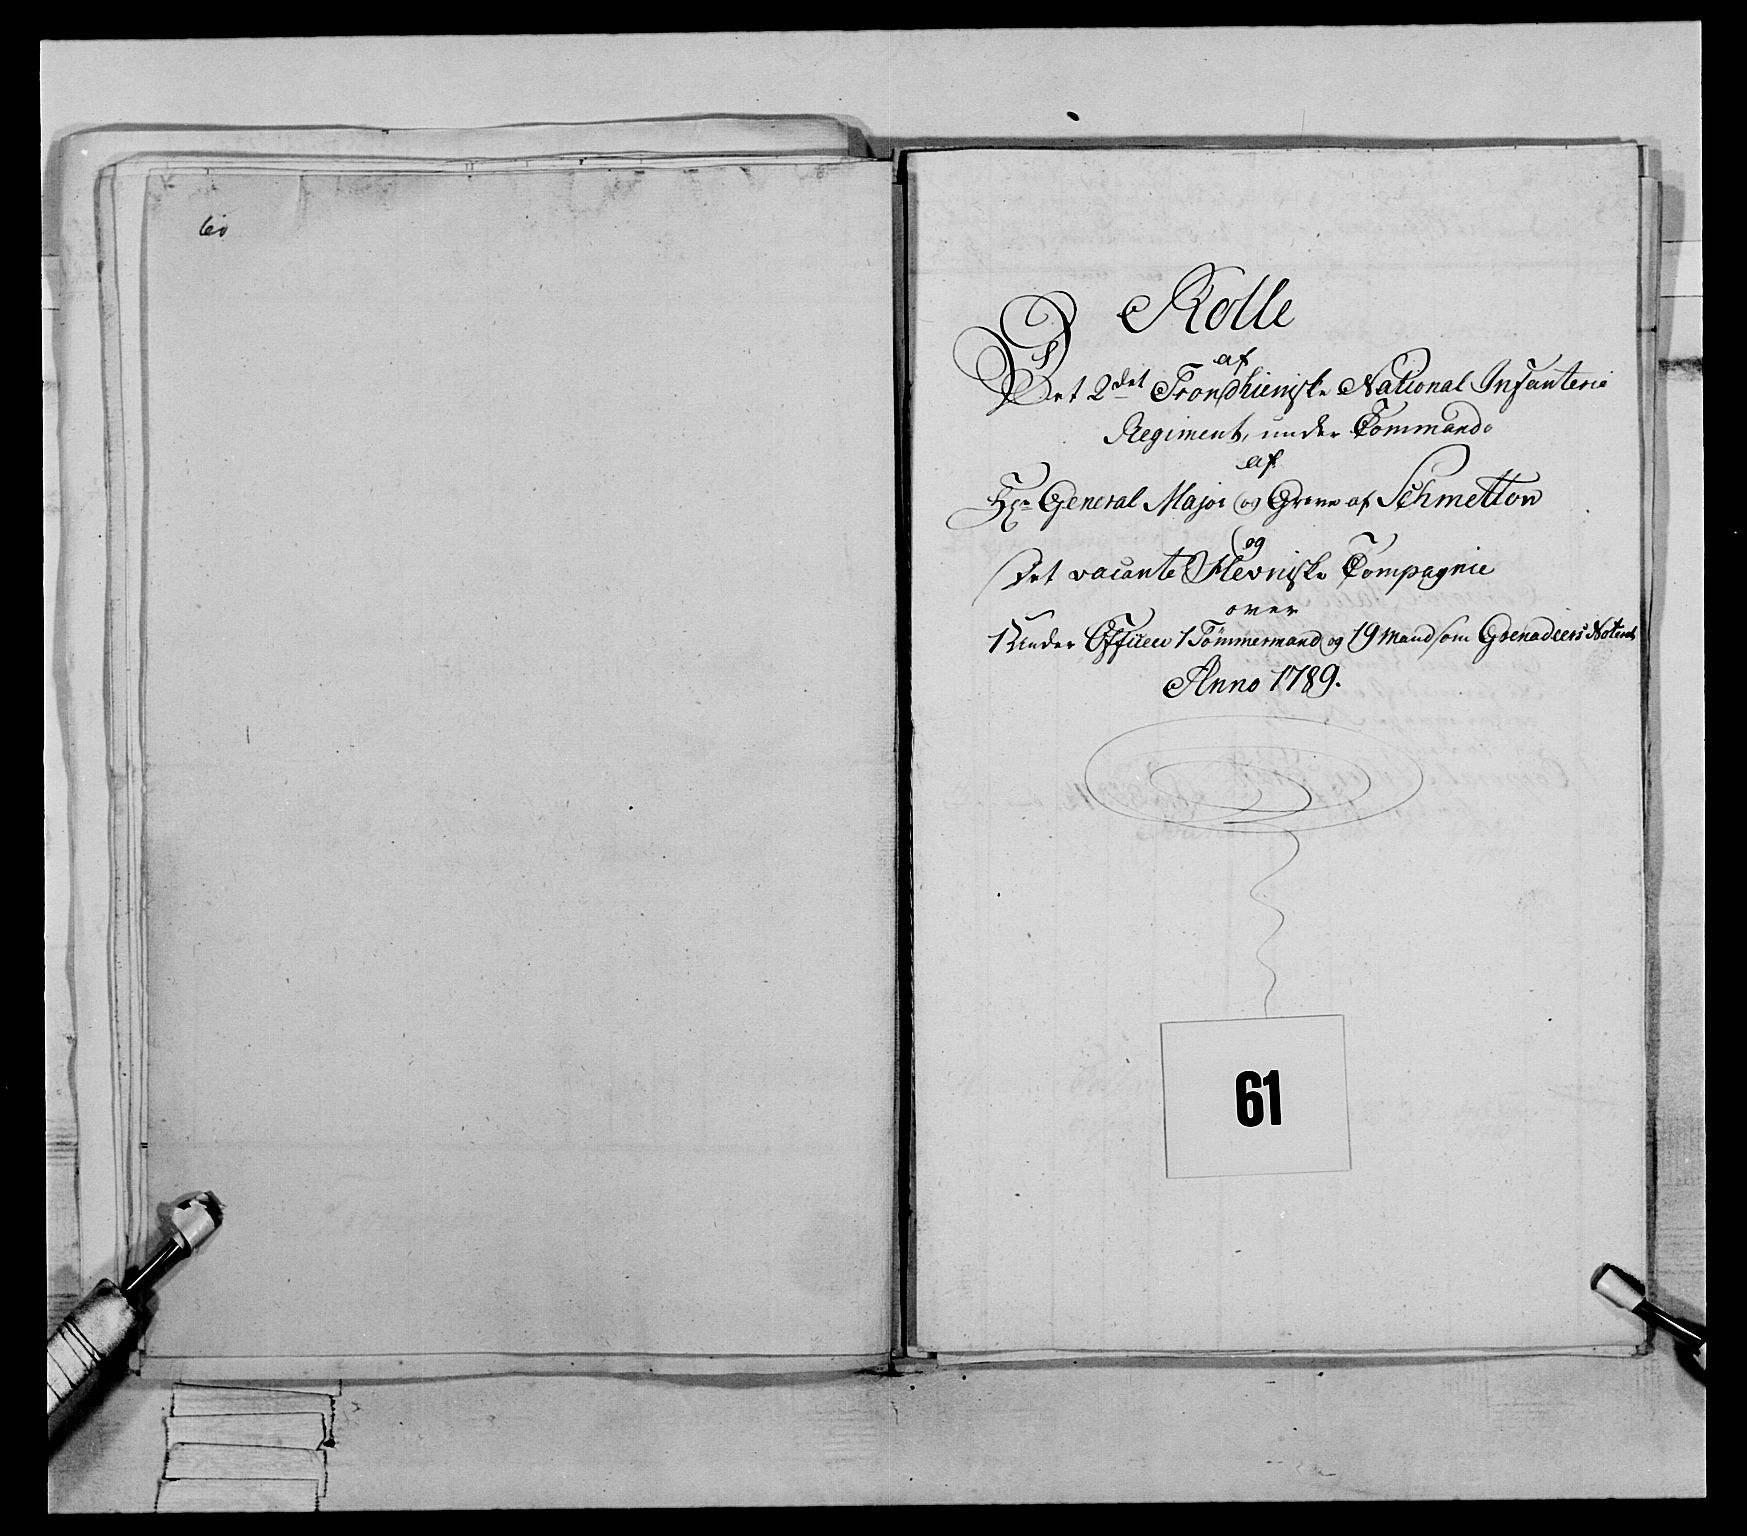 60
Rolle
af
Det 2det Trondhiemske National Infanterie
Regiment, under Commando
af
Hr General Major og Greve af Schmettow
og
Det vacante Hevniske Compagnie
over
1 Under Officeer 1 Tømmermand og 19 Mand som Grenadeers
Anno 1789.
61